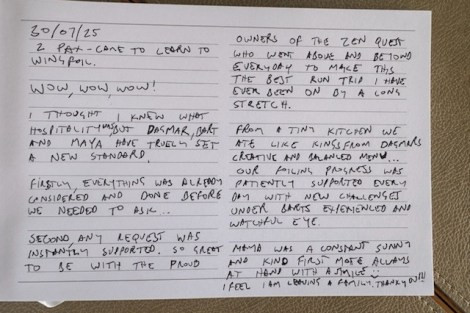 30/07/25
2 PAX - CAME TO LEARN TO
WINGFOIL.
WOW, WOW, WOW!
I THOUGHT I KNEW WHAT
HOSPITALITY WAS, BUT DAGMAR, BART
AND MAYA HAVE TRUELY SET
A NEW STANDARD.
FIRSTLY, EVERYTHING WAS ALREADY
CONSIDERED AND DONE BEFORE
WE NEEDED TO ASK...
SECOND ANY REQUEST WAS
INSTANTLY SUPPORTED. SO GREAT
TO BE WITH THE PROUD
OWNERS OF THE ZEN QUEST
WHO WENT ABOVE AND BEYOND
EVERYDAY TO MAKE THIS
THE BEST RUN TRIP I HAVE
EVER BEEN ON BY A LONG
STRETCH.
FROM A TINY KITCHEN WE
ATE LIKE KINGS FROM DAGMARS
CREATIVE AND BALANCED MENU...
OUR FOILING PROGRESS WAS
PATIENTLY SUPPORTED EVERY
DAY WITH NEW CHALLENGES
UNDER BARTS EXPERIENCED AND
WATCHFUL EYE.
WAS A CONSTANT SUNNY
AND KIND FIRST MATE ALWAYS
AT HAND WITH A SMILE
I FEEL I AM LEAVING A FAMILY. THANKYOU!!!